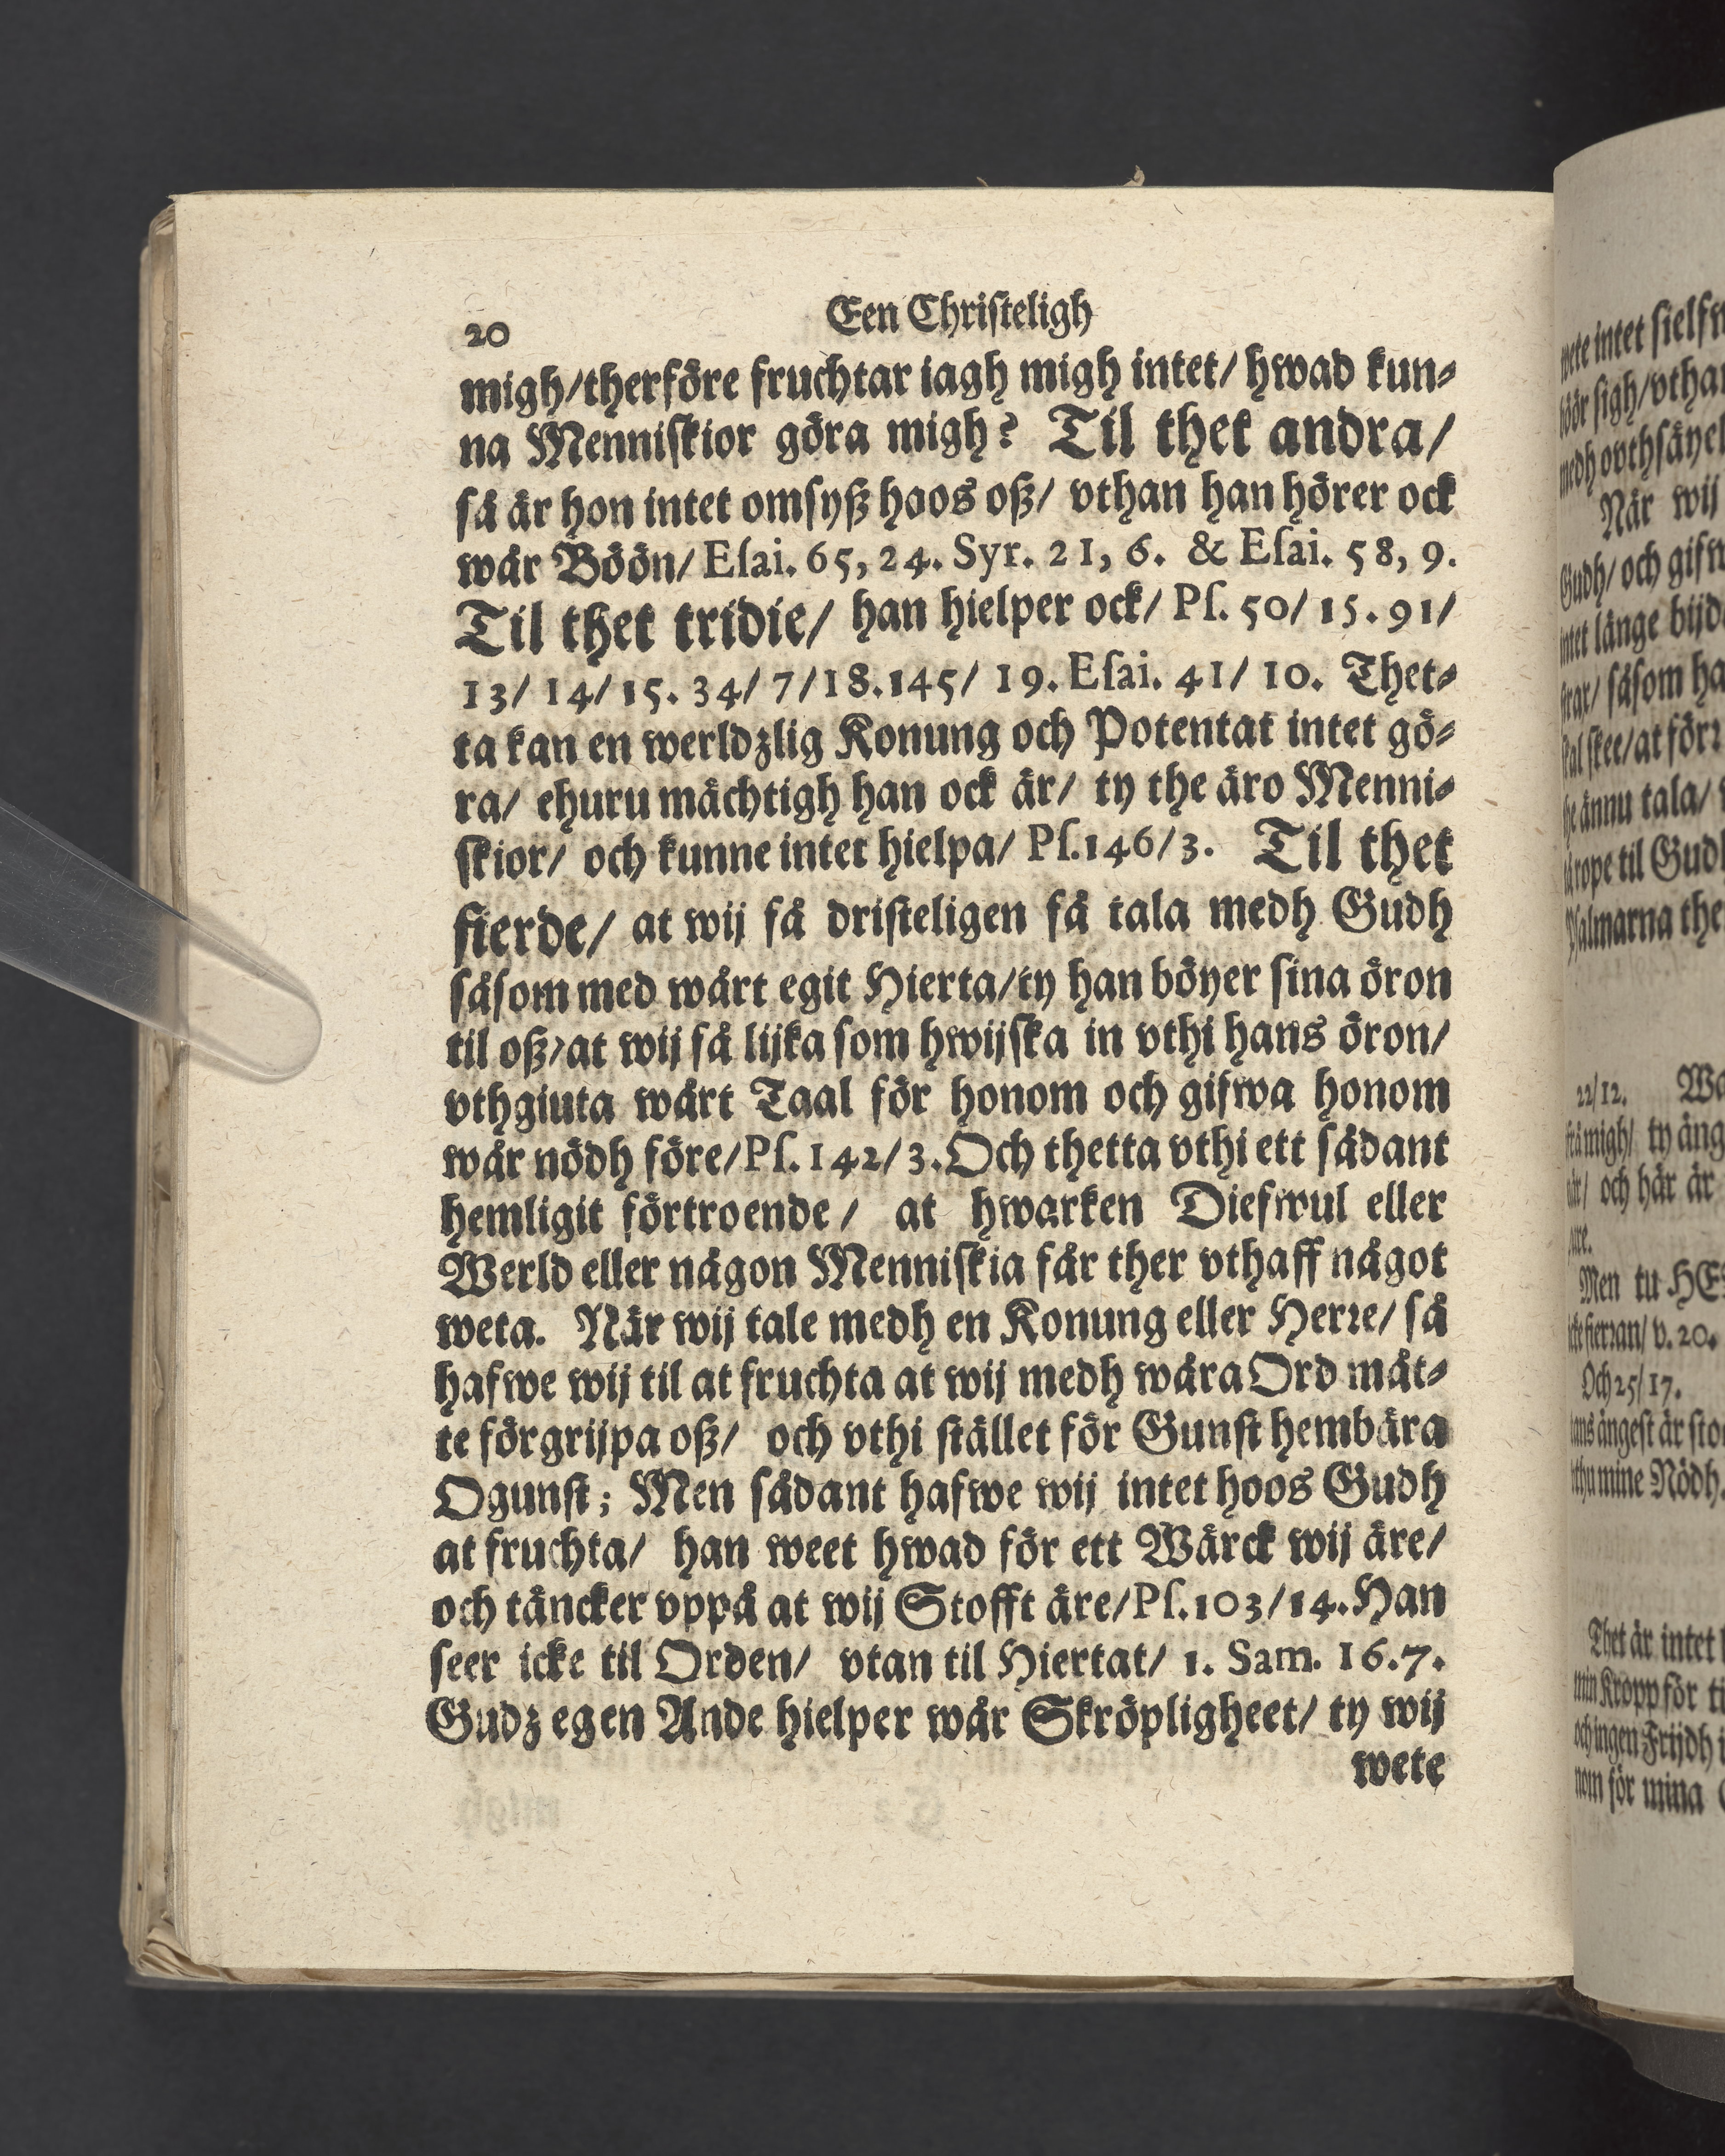 20 Een Christeligh
migh/therföre fruchtar iagh migh intet/ hwad kun-
na Menniskior göra migh? Til thet andra/
så är hon intet omsyß hoos oß/ vthan han hörer ock
wår Böön/ Esai. 65, 24. Syr. 21, 6. & Esai. 58, 9.
Til thet tridie/ han hielper ock/ Ps. 50/ 15. 91/
13/ 14/ 15. 34/ 7/ 18. 145/ 19. Esai. 41/ 10. Thet-
ta kan en werldzlig Konung och Potentat intet gö-
ra/ ehuru mächtigh han ock är/ ty the äro Menni-
skior/ och kunne intet hielpa/ Ps. 146/3. Til thet
fierde/ at wij få dristeligen få tala medh Gudh
såsom med wårt egit Hierta/ty han böyer sina öron
til oß/at wij så lijka som hwijska in vthi hans öron/
vthgiuta wårt Taal för honom och gifwa honom
wår nödh före/Ps. 142/3. Och thetta vthi ett sådant
hemligit förtroende/ at hwarken Diefwul eller
Werld eller någon Menniskia får ther vthaff något
weta. När wij tale medh en Konung eller Herre/ så
hafwe wij til at fruchta at wij medh wåra Ord måt-
te förgrijpa oß/ och vthi stället för Gunst hembära
Ogunst; Men sådant hafwe wij intet hoos Gudh
at fruchta/ han weet hwad för ett Wärck wij äre/
och täncker vppå at wij Stofft äre/Ps. 103/14. Han
seer icke til Orden/ vtan til Hiertat/ 1. Sam. 16.7.
Gudz egen Ande hielper wår Skröpligheet/ ty wij
wete
wete intet sielfw
sigh/vthan
När wij
Gudh/ och gifw
länge
såsom ha
ännu tala/
rope til Gudh
22/12.
migh/ ty äng
och här är
Men tu HE
v. 20.
Och 25/ 17.
ångest är sto
mine Nödh.
Thet är intet
min Kropp för ti
ingen Frijdh i
för mina